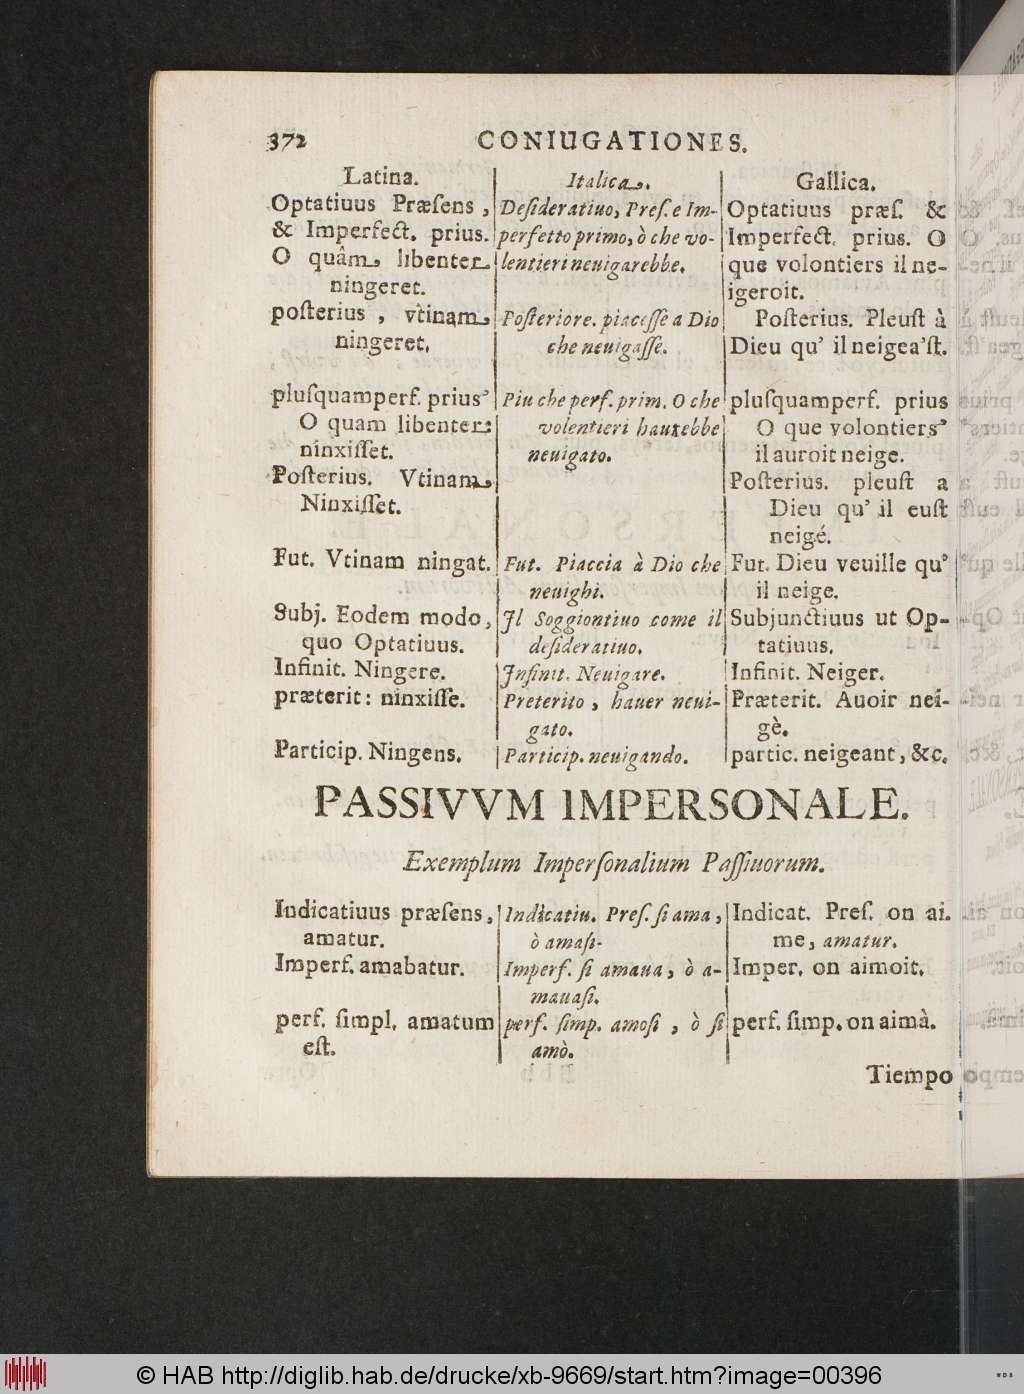 372
CONIUGATIONES.
Latina.
Optatiuus Præſens,
& Imperfect. prius.
O quâm libenter
ningeret.
poſterius, vtinam
ningeret.
pluſquamperf. prius
O quam libenter:
ninxiſſet.
Poſterius. Vtinam
Ninxiſſet.
Fut. Vtinam ningat.
Subj. Eodem modo,
quo Optatiuus.
Infinit. Ningere.
præterit: ninxiſſe.
Particip. Ningens.
Italica.
Deſideratiuo, Preſ. e Im-
perfetto primo, ò che vo-
lentieri neuigarebbe.
Poſteriore. piaceſſe a Dio
che neuigaſſe.
Piu che perf. prim. O che
volentieri haurebbe
neuigato.
Fut. Piaccia à Dio che
neuighi.
Jl Soggiontiuo come il
deſideratiuo.
Jnfinit. Neuigare.
Preterito, hauer neui-
gato.
Particip. neuigando.
Gallica.
Optatiuus præſ. &
Imperfect. prius. O
que volontiers il ne-
igeroit.
Poſterius. Pleuſt à
Dieu qu' il neigea'ſt.
pluſquamperf. prius
O que volontiers'
il auroit neige.
Poſterius. pleuſt a
Dieu qu' il euſt
neigé.
Fut. Dieu veuille qu'
il neige.
Subjunctiuus ut Op-
tatiuus.
Infinit. Neiger.
Præterit. Auoir nei-
gè.
partic. neigeant, &c.
PASSIVVM IMPERSONALE.
Exemplum Imperſonalium Paſſiuorum.
Indicatiuus præſens,
amatur.
Imperf. amabatur.
perf. ſimpl. amatum
eſt.
Indicatiu. Preſ. ſi ama,
ò amaſi-
Imperf. ſi amaua, ò a-
mauaſi.
perf. ſimp. amoſi, ò ſi
amò.
Indicat. Preſ. on ai.
me, amatur.
Imper. on aimoit.
perf. ſimp. on aimà.
Tiempo
© HAB http://diglib.hab.de/drucke/xb-9669/start.htm?image=00396